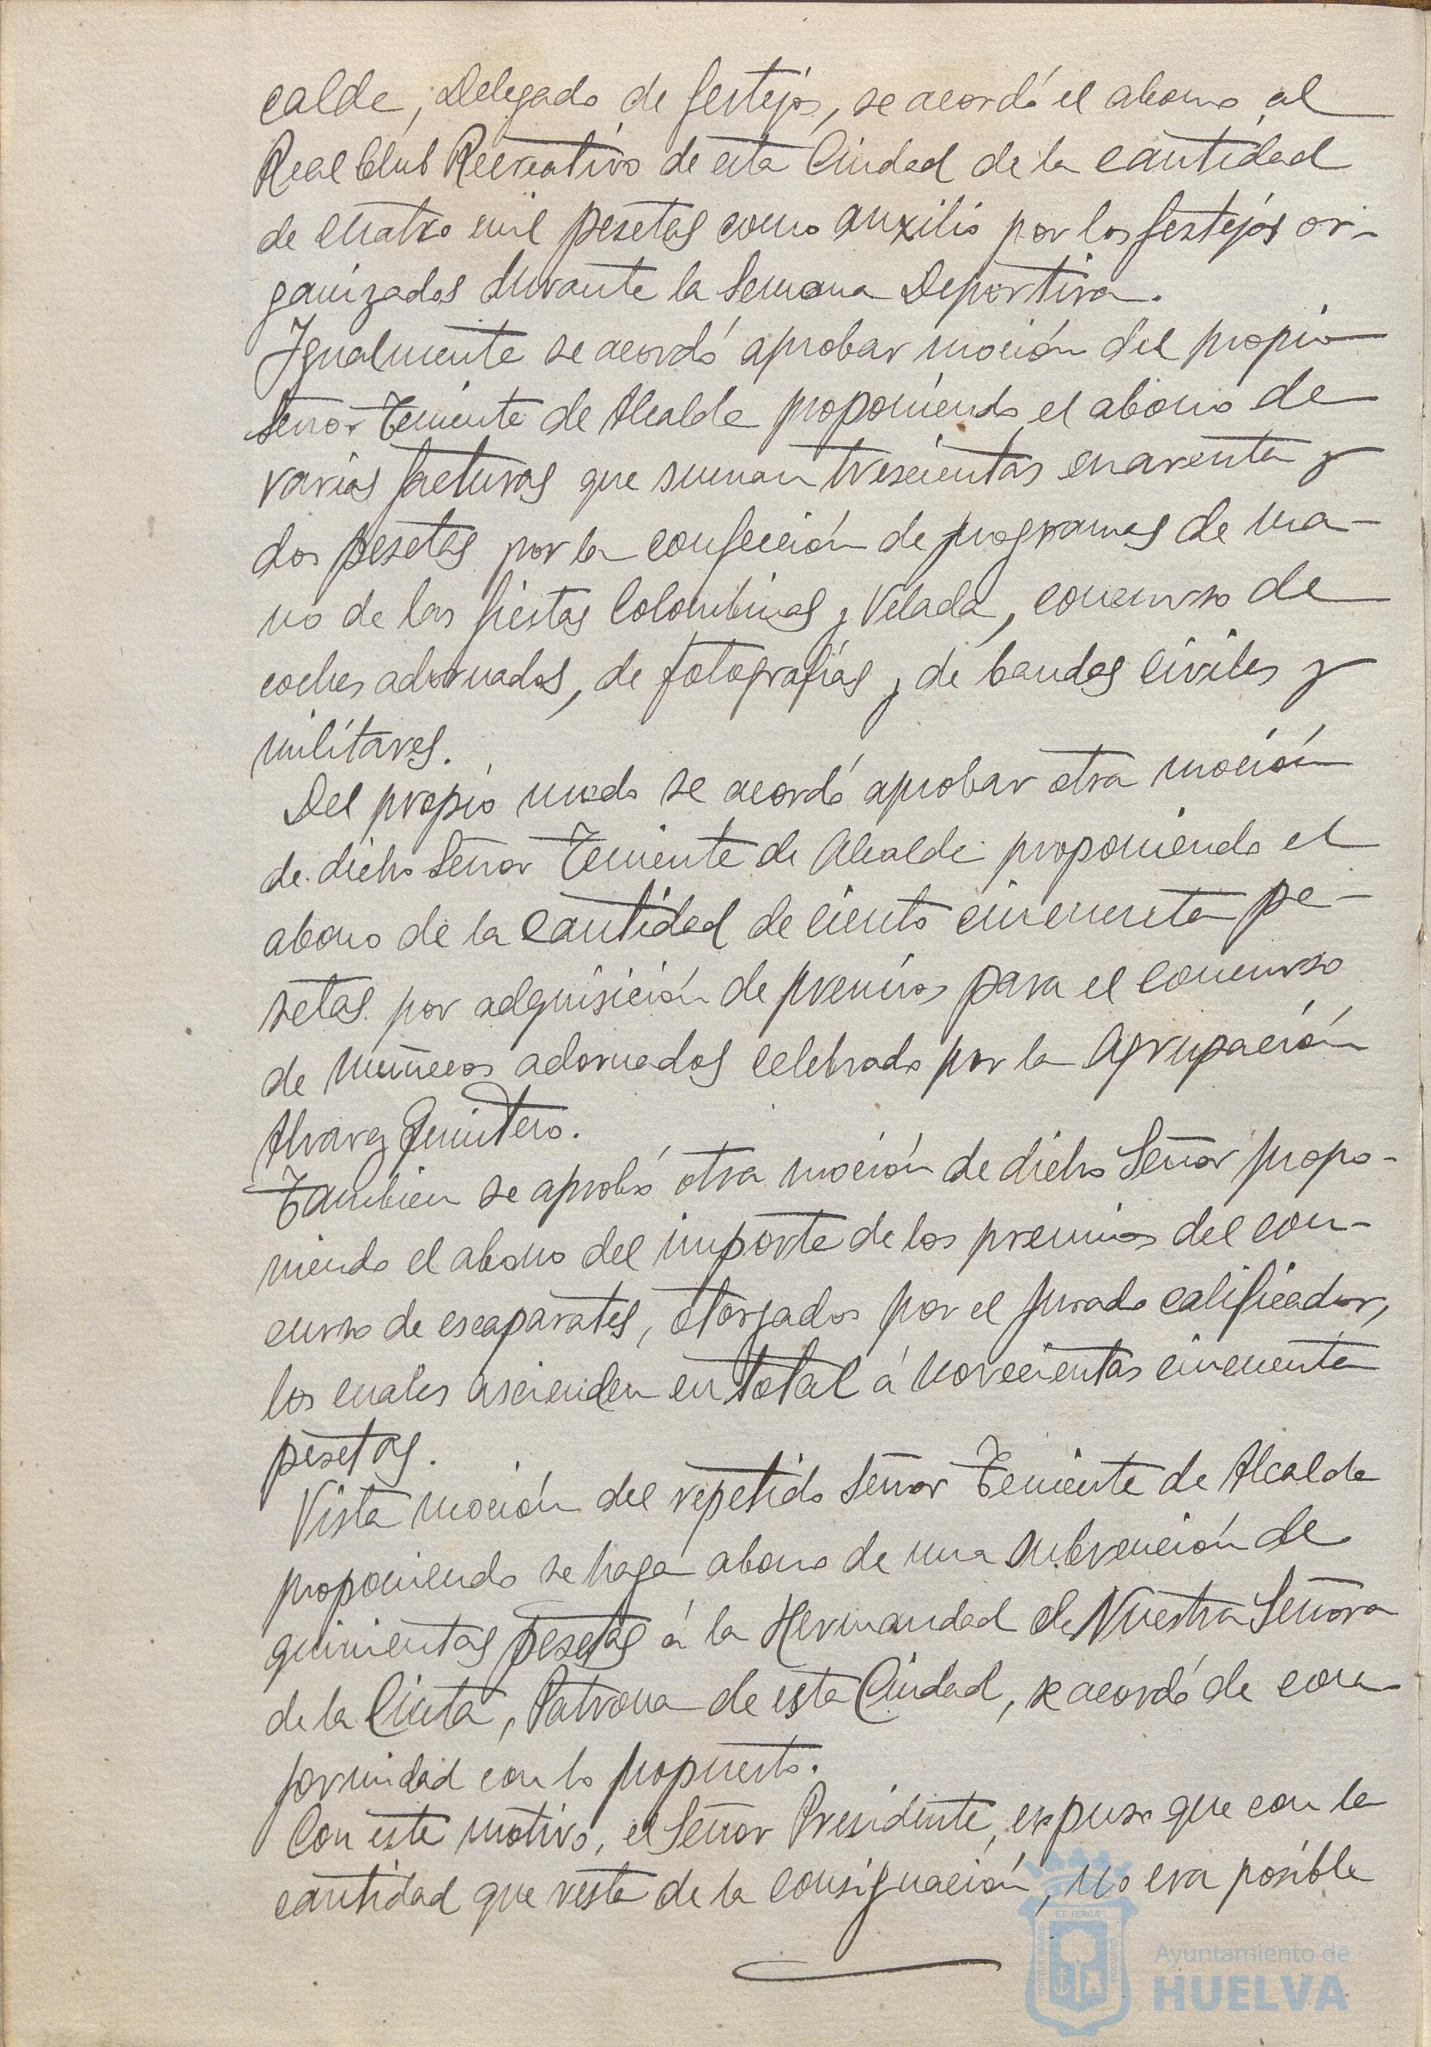 calde, Delegado de festejos, se acordó el abono al
Real Club Recreativo de esta Ciudad de la cantidad
de cuatro mil pesetas como auxilio por los festejos or-
ganizados durante la Semana Deportiva.
Igualmente se acordó aprobar moción del propio
Señor Teniente de Alcalde proponiendo el abono de
varias facturas que suman trescientas cuarenta y
dos pesetas por la confección de programas de ma-
no de las fiestas Colombinas y Velada, concurso de
coches adornados, de fotografías y de bandas civiles y
militares.
Del propio modo se acordó aprobar otra moción
de dicho Señor Teniente de Alcalde proponiendo el
abono de la cantidad de ciento cincuenta pe-
setas por adquisición de premios para el concurso
de muñecos adornados celebrado por la Agrupación
Alvarez Quintero.
Tambien se aprobó otra moción de dicho Señor propo-
niendo el abono del importe de los premios del con-
curso de escaparates, otorgados por el Jurado calificador,
los cuales ascienden en total á novecientas cincuenta
pesetas.
Vista moción del repetido Señor Teniente de Alcalde
proponiendo se haga abono de una subvención de
quinientas pesetas á la Hermandad de Nuestra Señora
de la Cinta, Patrona de esta Ciudad, se acordó de con-
formidad con lo propuesto.
Con este motivo, el Señor Presidente, expuso que con la
cantidad que resta de la consignación, no era posible
Ayuntamiento de
HUELVA